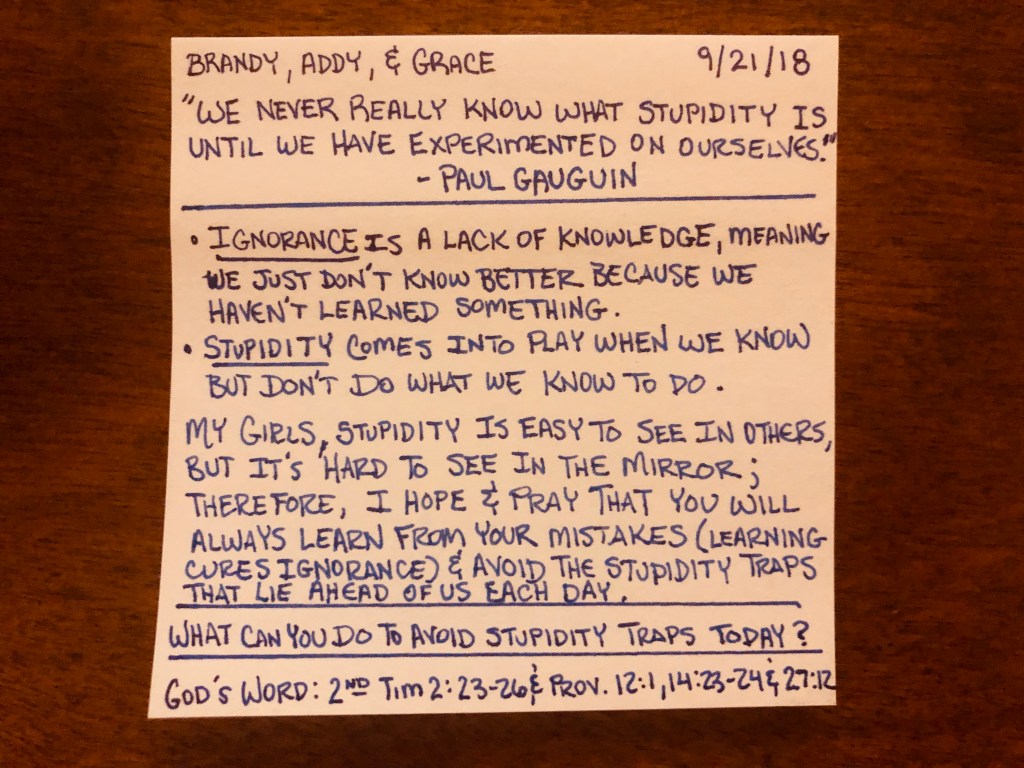 BRANDY, ADDY, & GRACE 9/21/18
"WE NEVER REALLY KNOW WHAT STUPIDITY IS
UNTIL WE HAVE EXPERIMENTED ON OURSELVES."
- PAUL GAUGUIN
• IGNORANCE IS A LACK OF KNOWLEDGE, MEANING
WE JUST DON'T KNOW BETTER BECAUSE WE
HAVEN'T LEARNED SOMETHING.
• STUPIDITY COMES INTO PLAY WHEN WE KNOW
BUT DON'T DO WHAT WE KNOW TO DO.
MY GIRLS, STUPIDITY IS EASY TO SEE IN OTHERS,
BUT IT'S HARD TO SEE IN THE MIRROR;
THEREFORE, I HOPE & PRAY THAT YOU WILL
ALWAYS LEARN FROM YOUR MISTAKES (LEARNING
CURES IGNORANCE) & AVOID THE STUPIDITY TRAPS
THAT LIE AHEAD OF US EACH DAY.
WHAT CAN YOU DO TO AVOID STUPIDITY TRAPS TODAY?
GOD'S WORD: 2ND TIM 2:23-26 & PROV. 12:1, 14:23-24 & 27:12